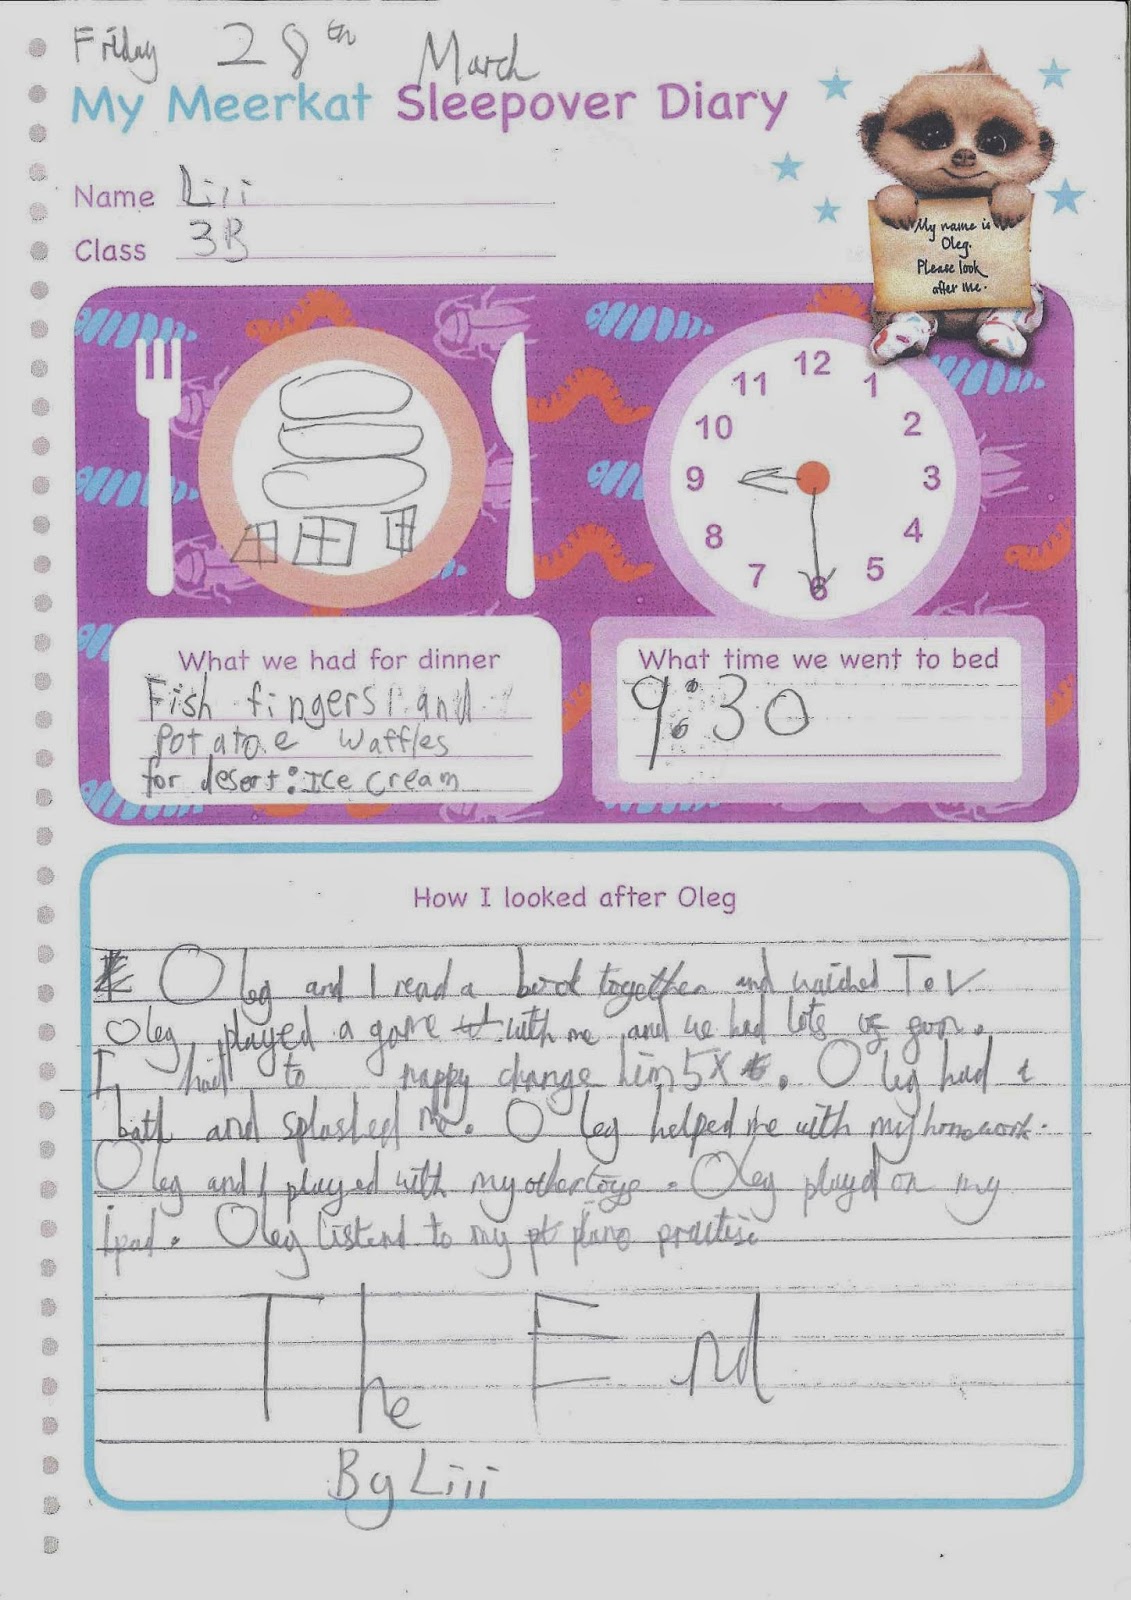 Friday 28th March
My Meerkat Sleepover Diary
Name Liii
Class 3B
My name is
Oleg.
Please look
after me.
12
11 1
10 2
9 3
8 4
7 5
6
What we had for dinner
Fish fingers and
potatoe waffles
for desert: Ice cream
What time we went to bed
9:30
How I looked after Oleg
Oleg and I read a book together and watched T.V
Oleg played a game with me and we had lots of goon.
I had to nappy change him 5X. Oleg had a
bath and splashed me. Oleg helped me with my homework.
Oleg and I played with my other toys. Oleg played on my
ipad. Oleg listend to my piano practise
The End
By Liii